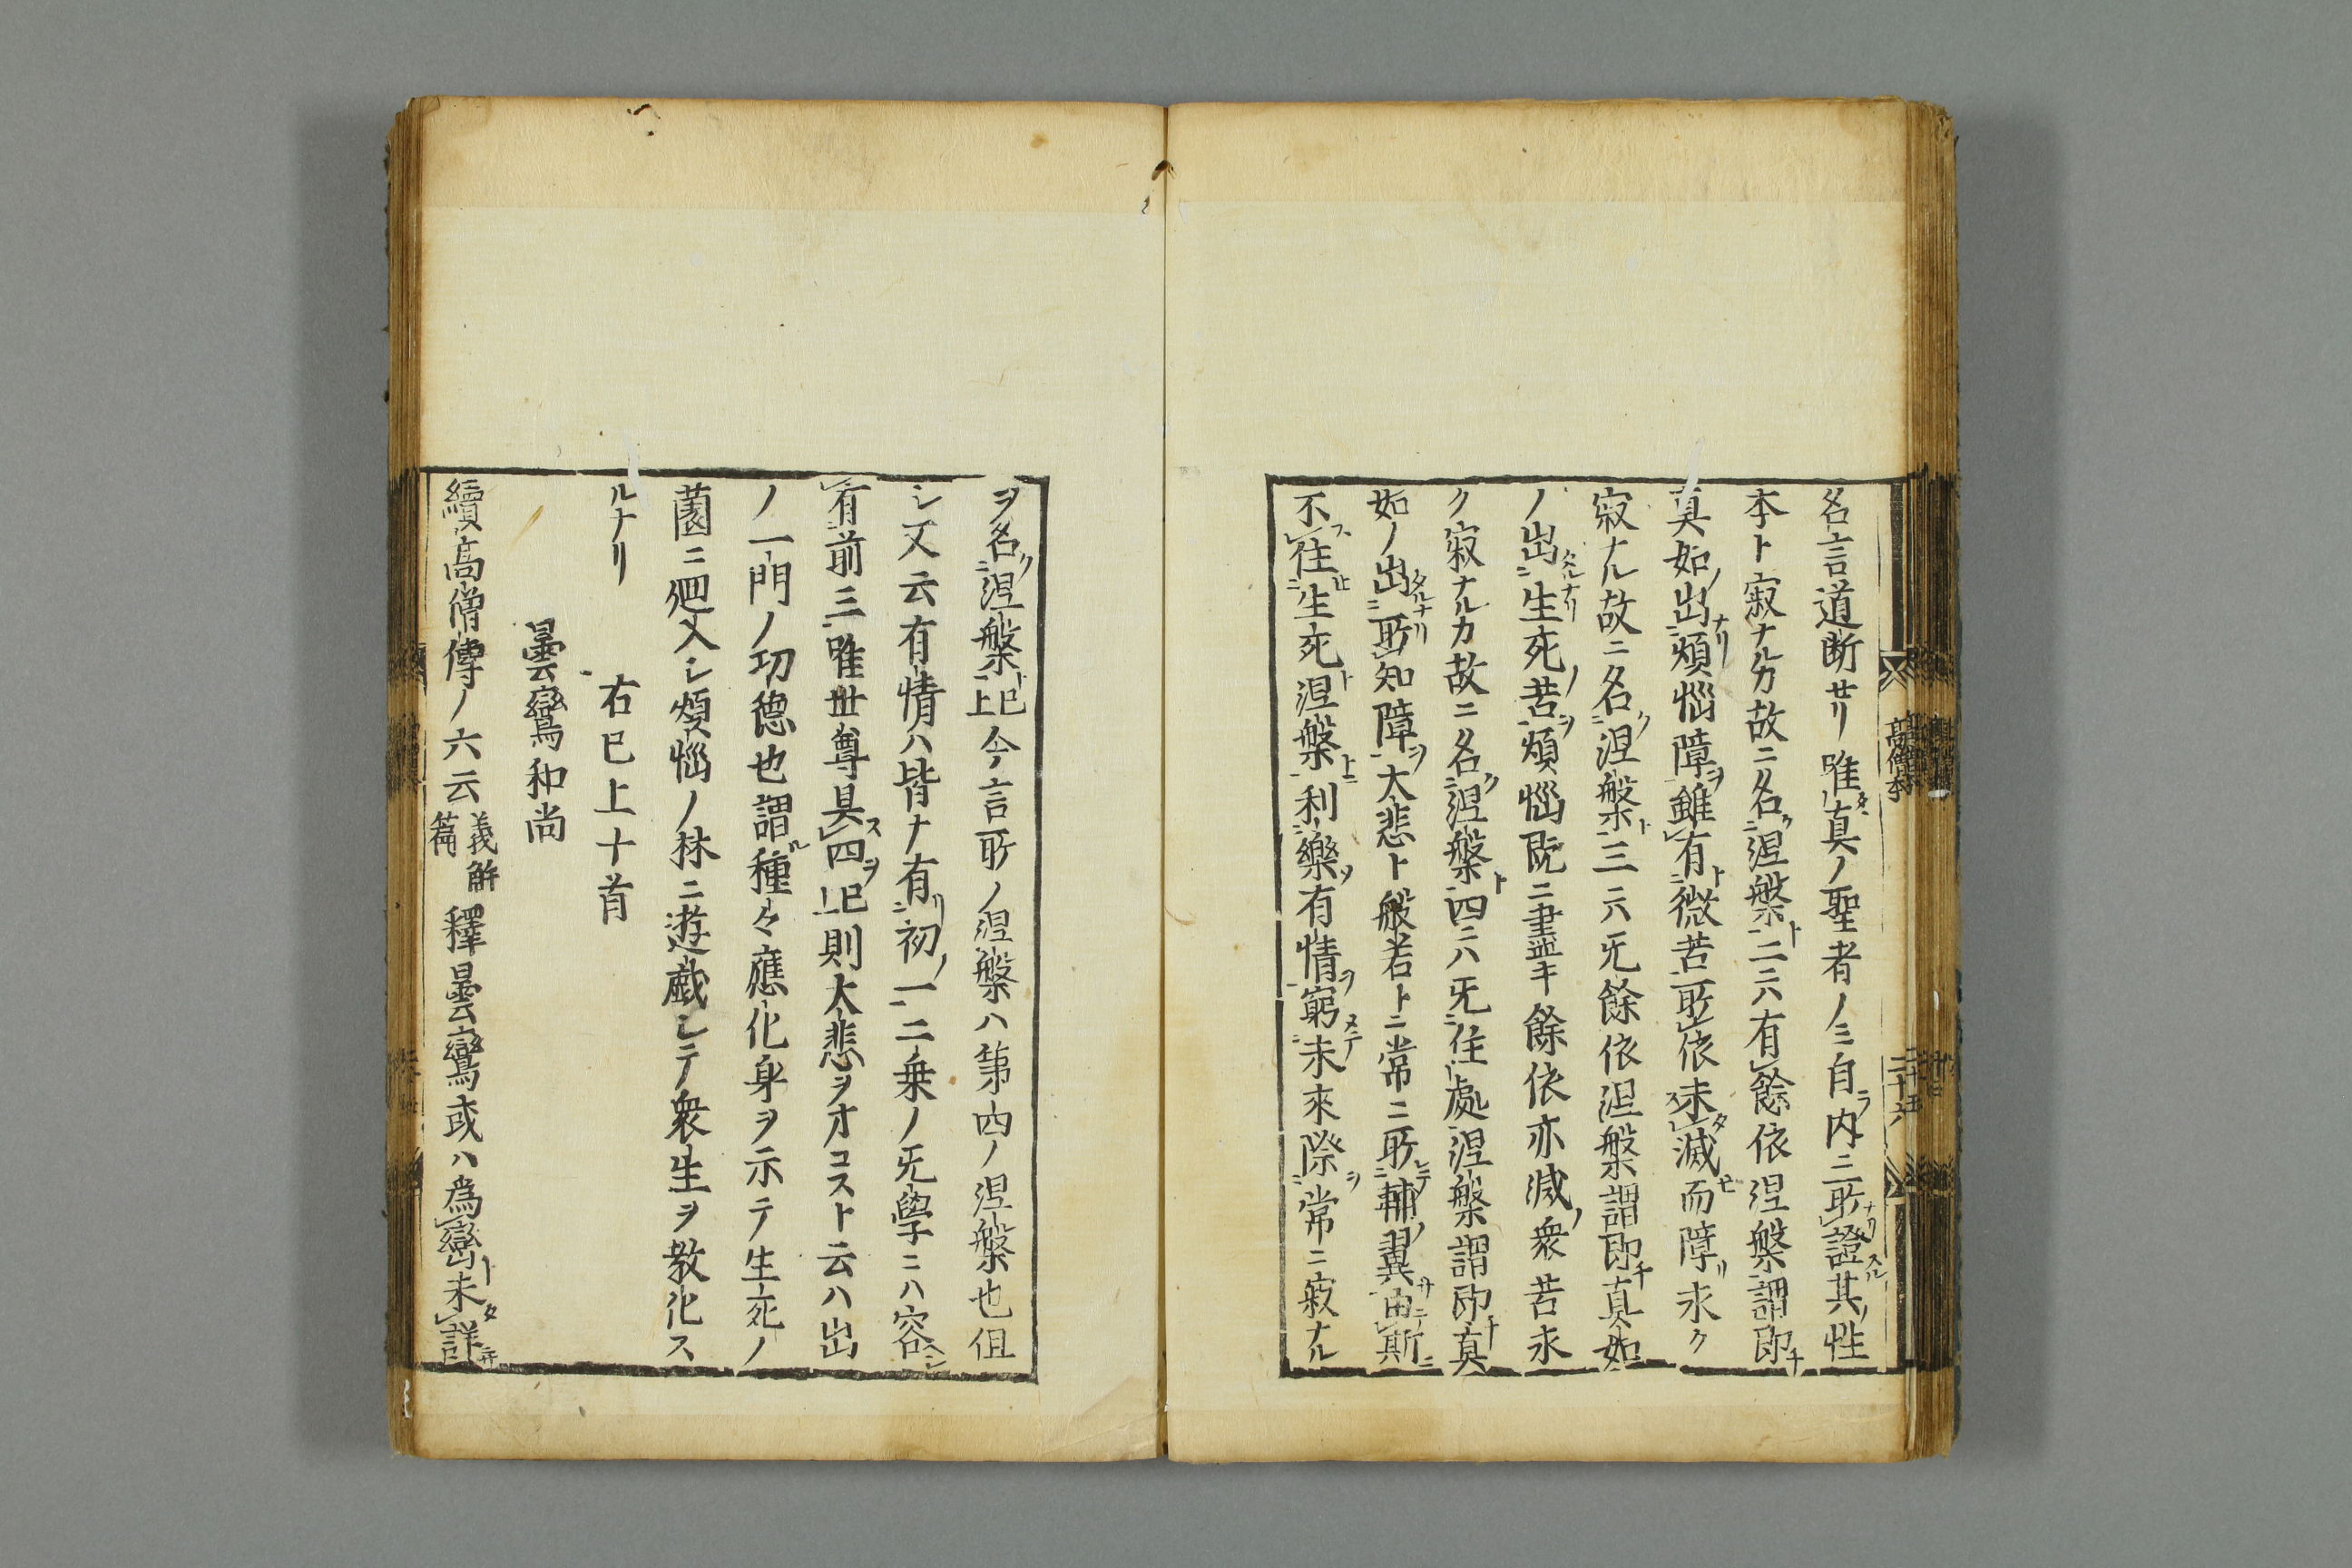 名言道断セリ唯タ真ノ聖者ノミ自ラ内ニ所ナリ證スル其ノ性
本ト寂ナルカ故ニ名ク涅槃ト二ニハ有餘依涅槃謂即チ
真如ノ出ナリ煩惱障ヲ雖有ト微苦所依未タス滅セ而障リ永ク
寂ナル故ニ名ク涅槃ト三ニハ旡餘依涅槃謂即チ真如
ノ出タルナリ生死ノ苦ヲ煩惱既ニ盡キ餘依亦滅ノ衆苦永
ク寂ナルカ故ニ名ク涅槃ト四ニハ旡住處涅槃謂即ト真
如ノ出タルナリ所知障ヲ大悲ト般若トニ常ニ所レテ輔翼サ由テ斯ニ
不ス住セ生死ト涅槃トニ利樂ヲ有情ヲ窮メテ未來際ヲ常ニ寂ナル
ヲ名ク涅槃ト已上今言所ノ涅槃ハ第四ノ涅槃也但
シ又云有情ハ皆ナ有リ初ノ一二乗ノ旡學ニハ容シ
有前三唯世尊具ス四ヲ已上則大悲ヲオコスト云ハ出
ノ一門ノ功徳也謂ル種々應化身ヲ示テ生死ノ
薗ニ廻入シ煩惱ノ林ニ遊戯シテ衆生ヲ教化ス
ルナリ 右已上十首
曇鸞和尚
續高僧傳ノ六云義解篇釋曇鸞或ハ為巒ト未タ詳